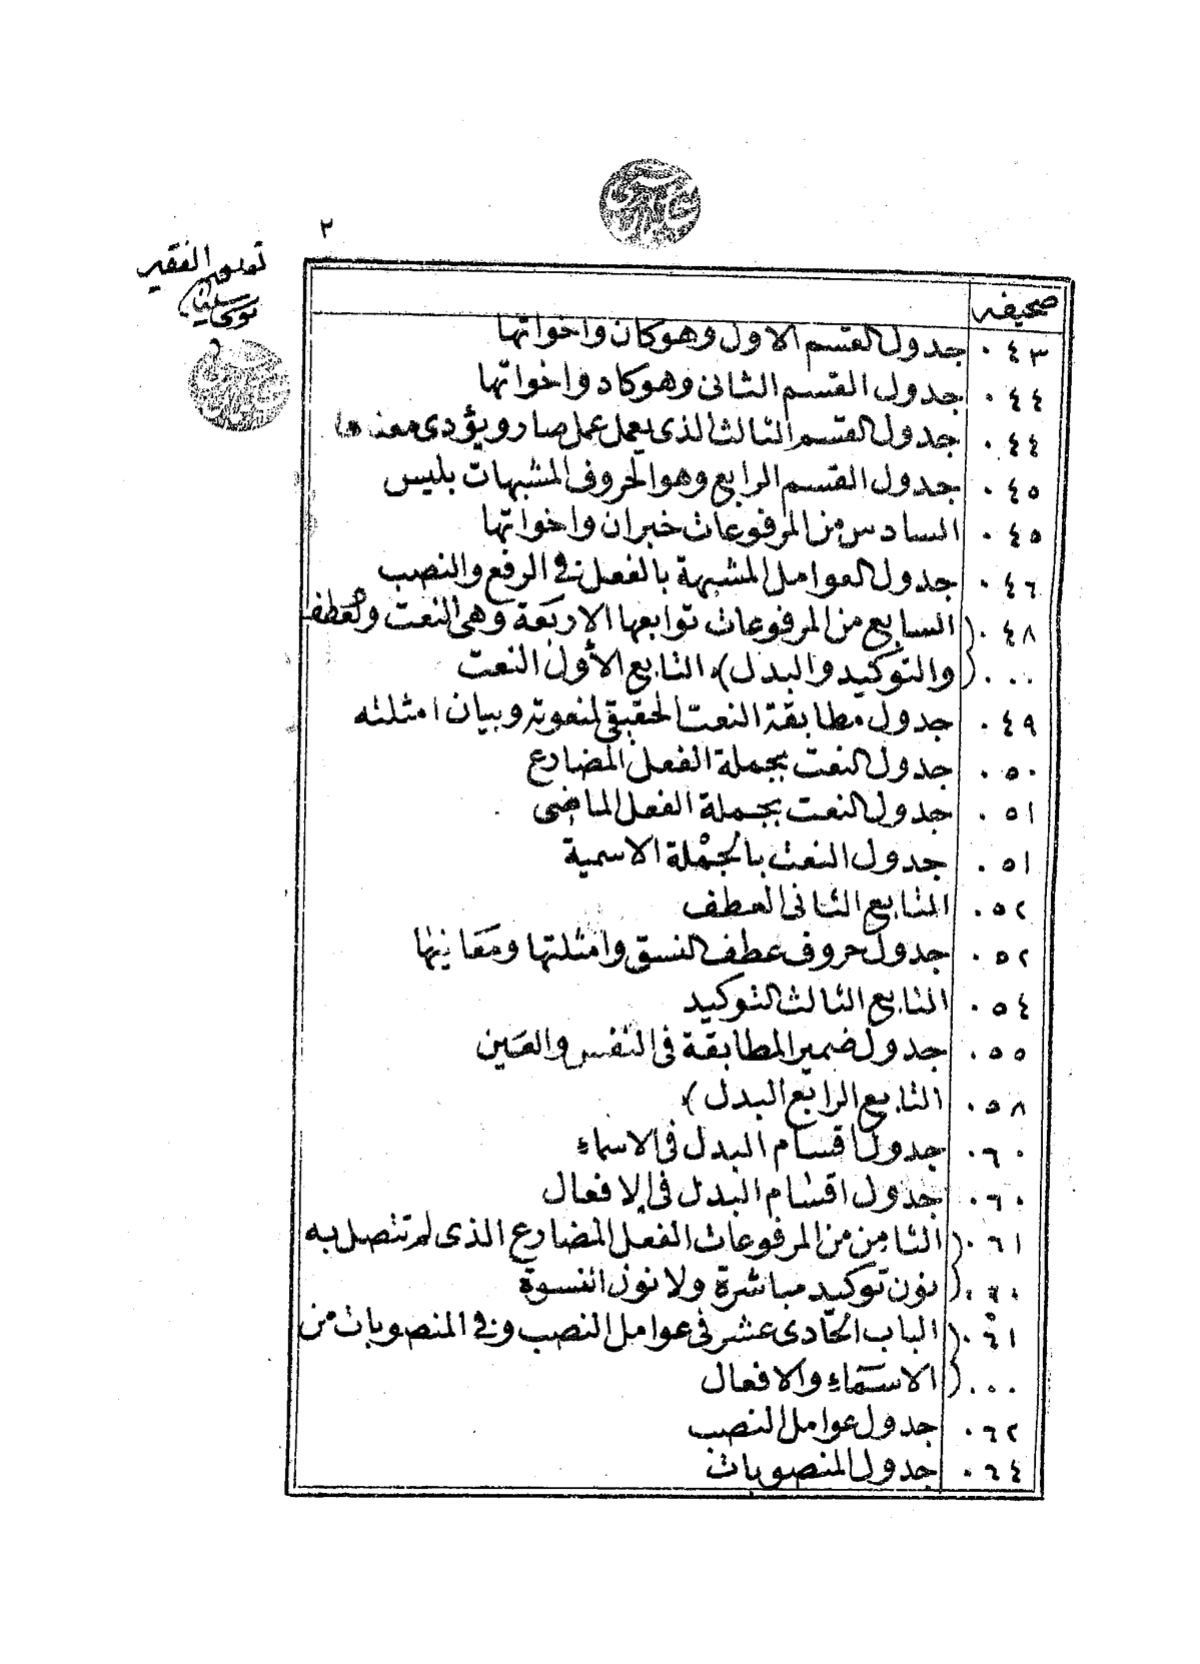 ٢
صحيفه
٠٤٣ جدول القسم الاول وهو كان واخواتها
٠٤٤ جدول القسم الثانى وهو كاد واخواتها
٠٤٤ جدول القسم الثالث الذى يعمل عمل صار ويؤدى معناها
٠٤٥ جدول القسم الرابع وهو الحروف المشبهات بليس
٠٤٥ السادس من المرفوعات خبر ان واخواتها
٠٤٦ جدول العوامل المشبهة بالفعل فى الرفع والنصب
٠٤٨ السابع من المرفوعات توابعها الاربَعَة وهى النعت والعَطف
٠٠٠ والتوكيد والبدل). التابع الأول النعت
٠٤٩ جدول مطابقة النعت الحقيقى لمنعوته وبيان امثلته
٠٥٠ جدول النعت بجملة الفعل المضارع
٠٥١ جدول النعت بجملة الفعل الماضى
٠٥١ جدول النعت بالجمْلة الاسمية
٠٥٢ التابع الثانى العطف
٠٥٢ جدول حروف عطف النسق وامثلتها ومَعَانيها
٠٥٤ التابع الثالث التوكيد
٠٥٥ جدول ضمير المطابقة فى النفس والعَين
٠٥٨ التابع الرابع البدل).
٠٦٠ جدول اقسام البدل فى الاسماء
٠٦٠ جدول اقسام البدل فى الافعال
٠٦١ الثامن من المرفوعات الفعل المضارع الذى لم تتصل به
٠٦٠ نون توكيد مباشرة ولا نون النسوة
٠٦١ الباب الحَادى عشر فى عوامل النصب وفى المنصوبات من
٠٠٠ الاسمَاء والافعال
٠٦٢ جدول عوامل النصب
٠٦٤ جدول المنصوبات
الفقير